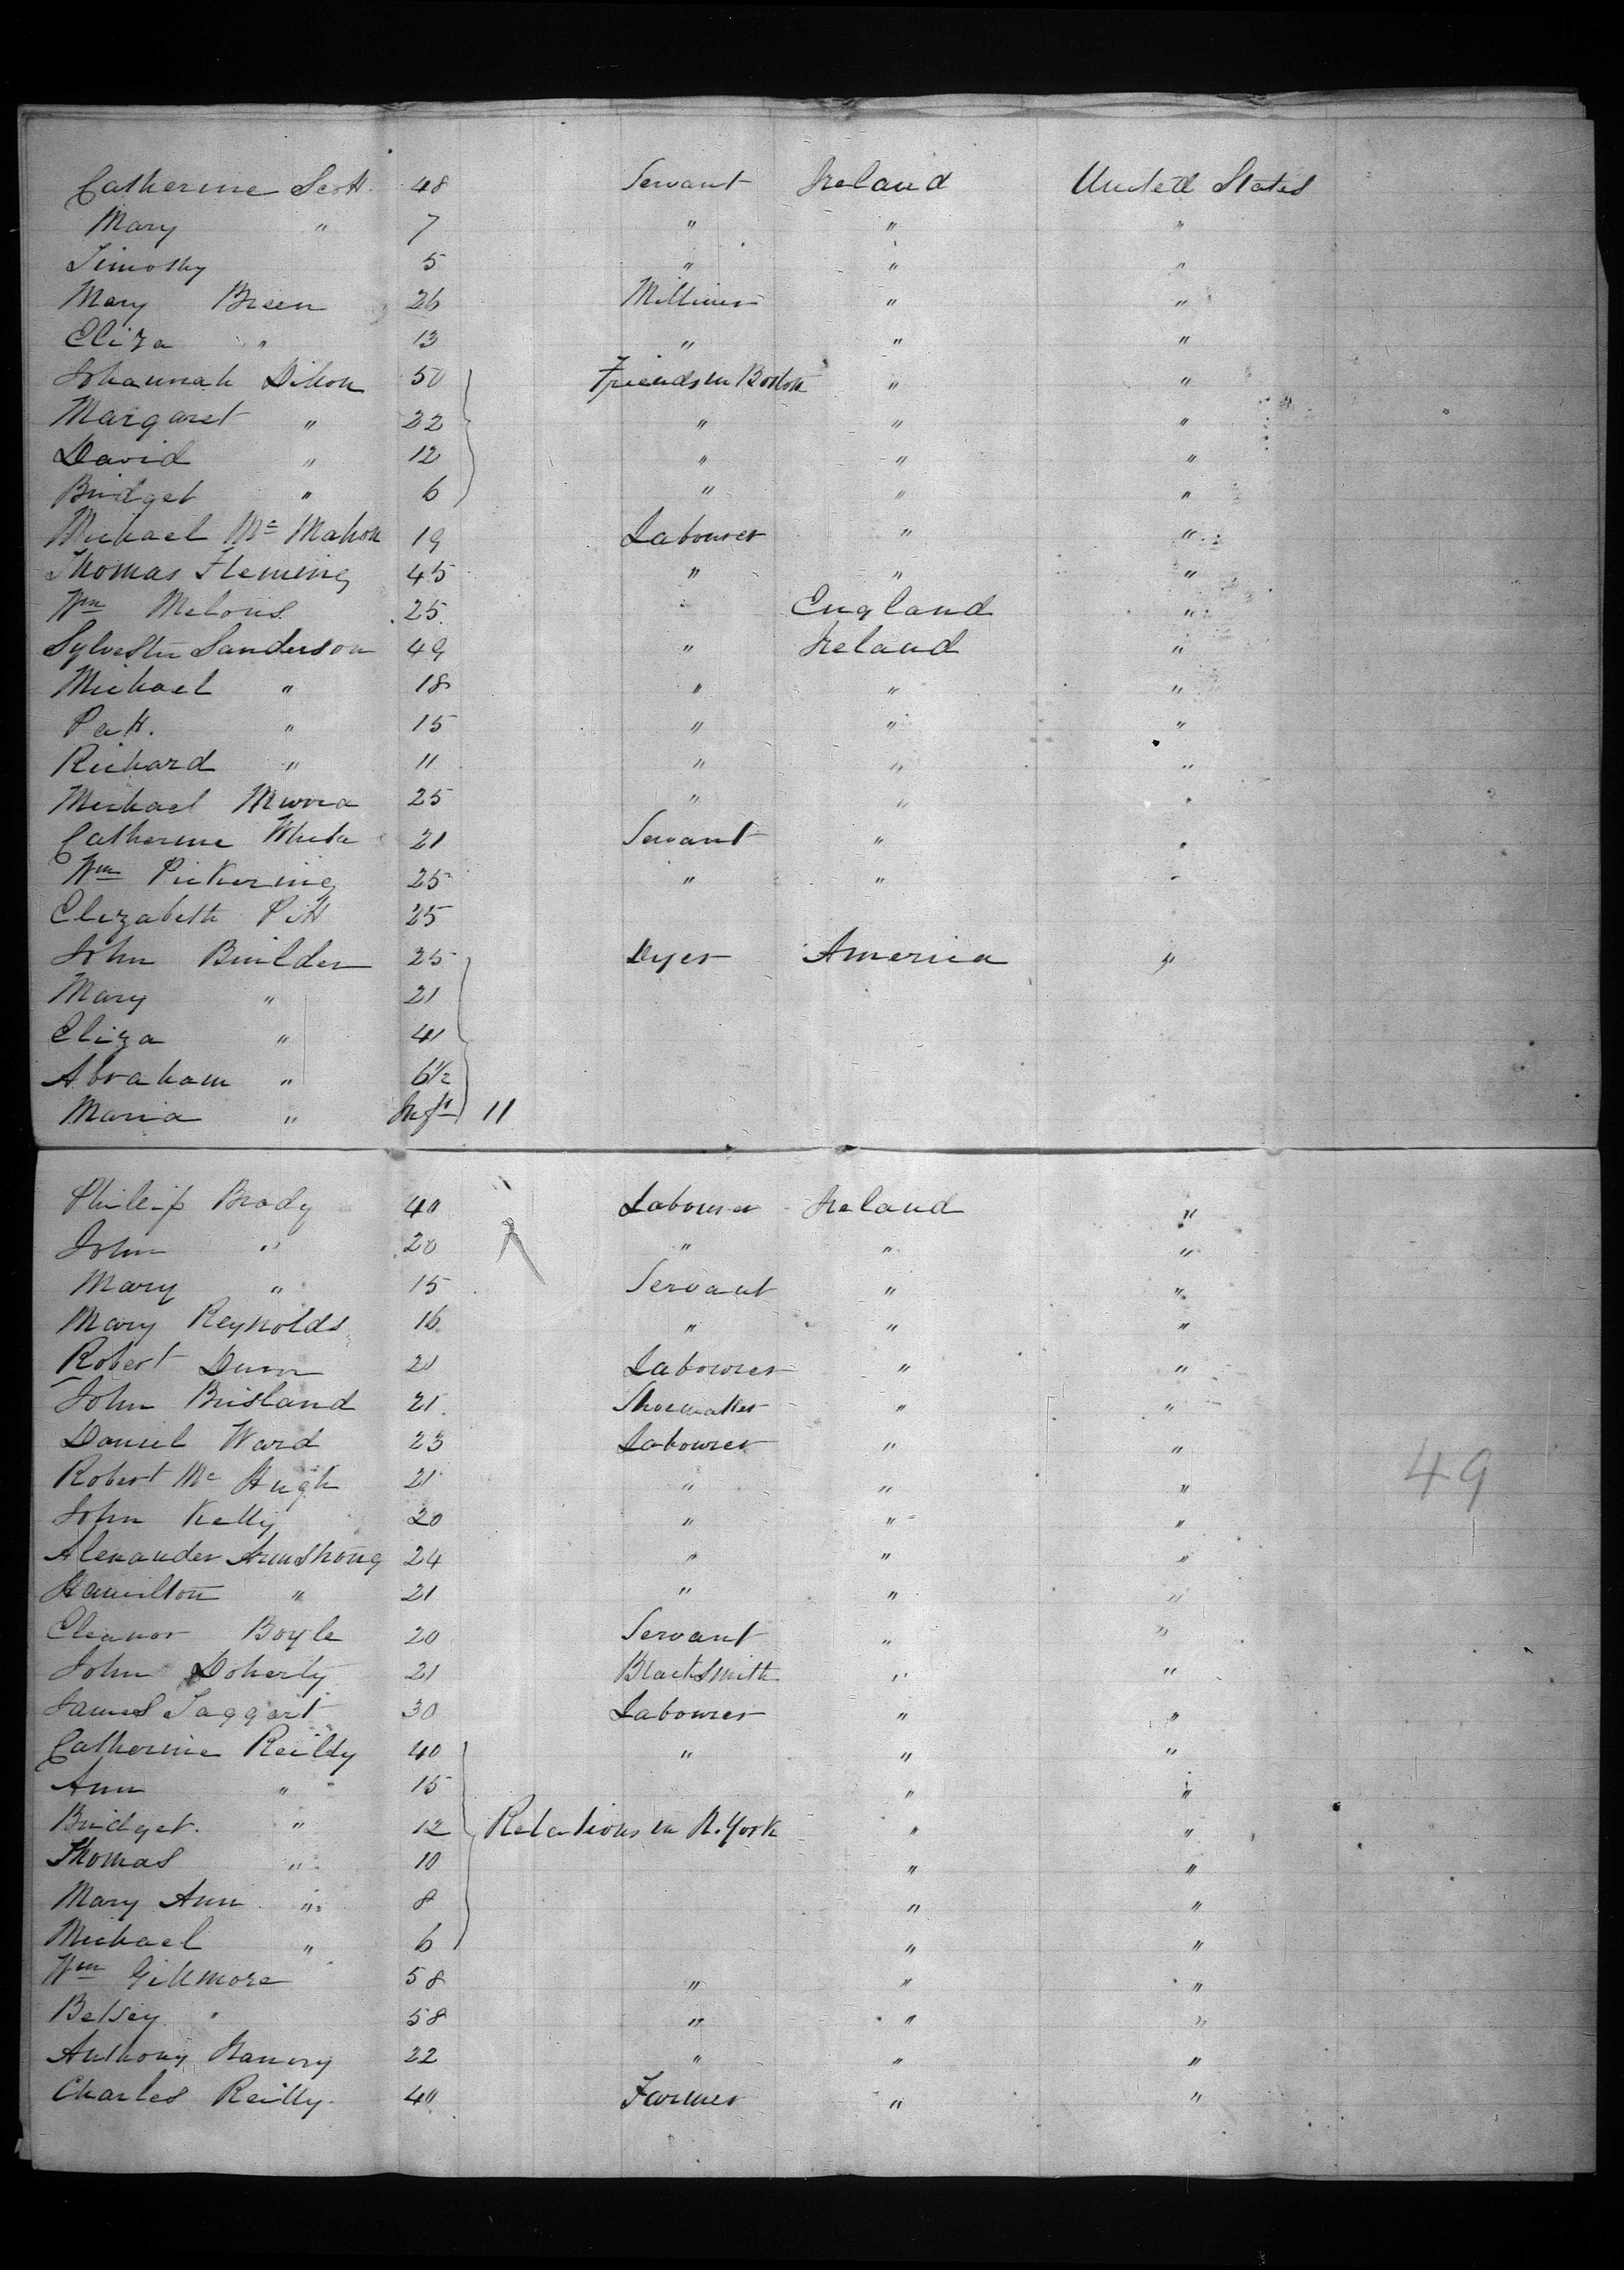 Catherine Scott 48 Servant Ireland United States
Mary " 7 " " "
Timothy 5 " " "
Mary Breen 26 Milliner " "
Eliza " 13 " " "
Johannah Dillon 50 Friends in Boston " "
Margaret " 22 " " "
David " 12 " " "
Bridget " 6 " " "
Michael Mc Mahon 19 Labourer " "
Thomas Fleming 45 " " "
Wm 25 England "
Sylvester Sanderson 49 " Ireland "
Michael " 18 " " "
Patt. " 15 " " "
Richard " 11 " " "
Michael 25 " " "
Catherine White 21 Servant " "
Wm Pickering 25 " " "
Elizabeth Pitt 25
John Builder 25 Dyer America "
Mary " 21
Eliza " 41
Abraham " 6½
Maria " Inft 11
Phileip Brady 40 Labourer Ireland "
John " 20 " " "
Mary " 15 Servant " "
Mary Reynolds 16 " " "
Robert Dunn 21 Labourer " "
John Brisland 21 Shoemaker " "
Daniel Ward 23 Labourer " "
Robert Mc Hugh 21 " " "
49
John Kelly 20 " " "
Alexander Armstrong 24 " " "
Hamilton " 21 " " "
Eleanor Boyle 20 Servant " "
John Doherty 21 Blacksmith " "
James Taggart 30 Labourer " "
Catherine Reilly 40 " " "
Ann " 15 " "
Bridget. " 12 Relations in N. York " "
Thomas " 10 " "
Mary Ann " 8 " "
Michael " 6 " "
Wm Gillmore 58 " " "
Betsey " 58 " " "
Anthony 22 " " "
Charles Reilly 40 Farmer " "